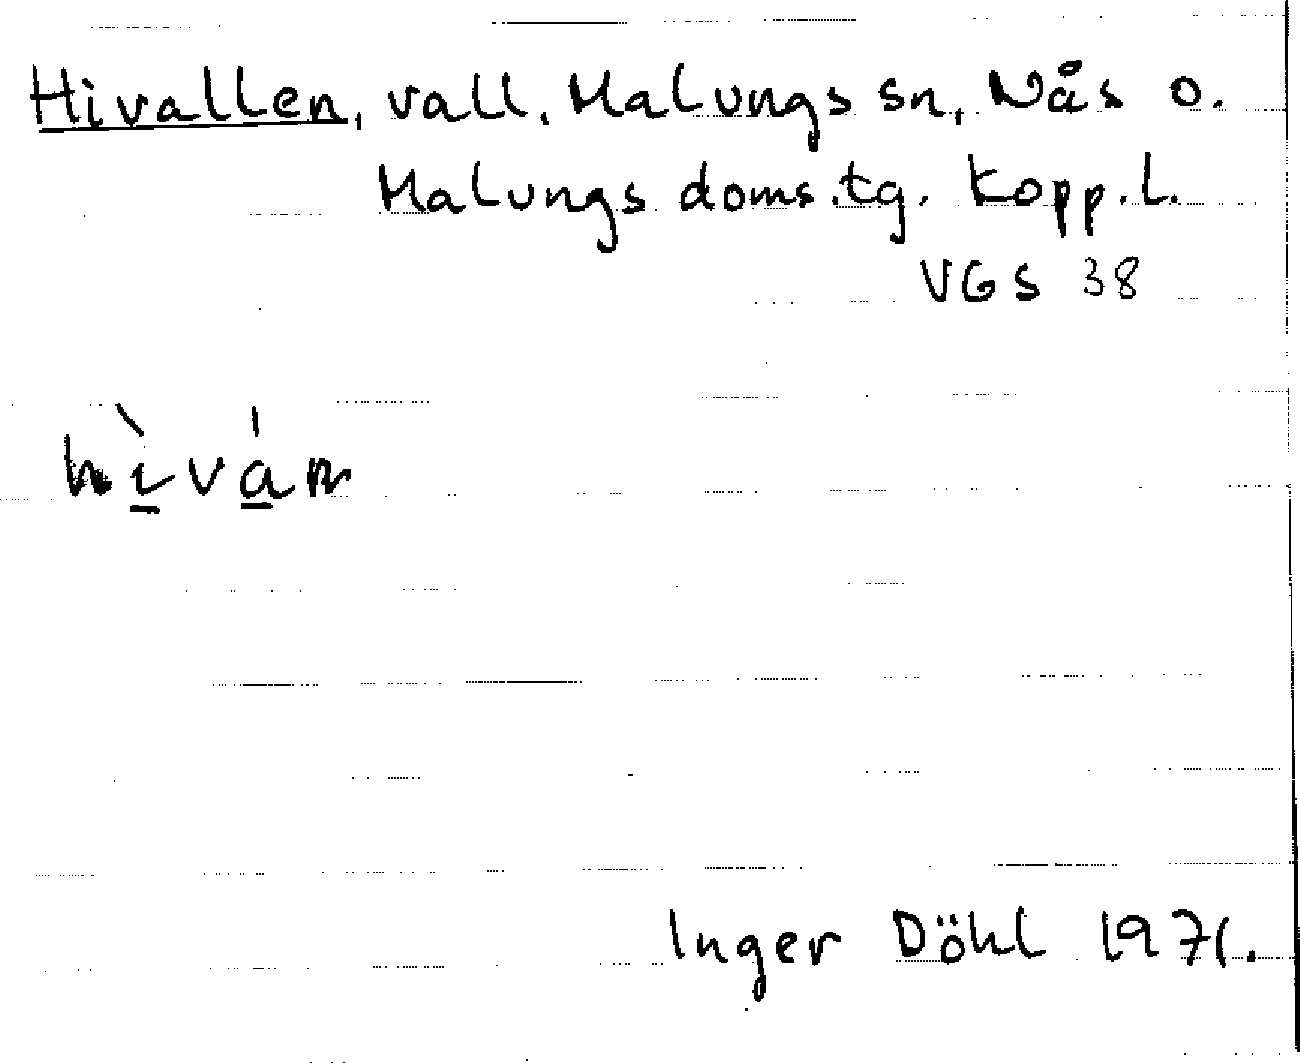 Hivallen, vall, Malungs sn, Nås o.
Malungs doms.tg. Kopp.l.
VGS 38
hìván
Inger Döhl 1971.